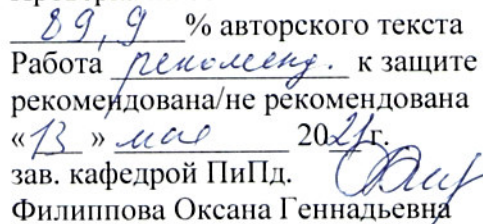 89,9 % авторского текста
Работа рекоменд. к защите
рекомендована/не рекомендована
«13» мая 2021 г.
зав. кафедрой ПиПд.
Филиппова Оксана Геннадьевна